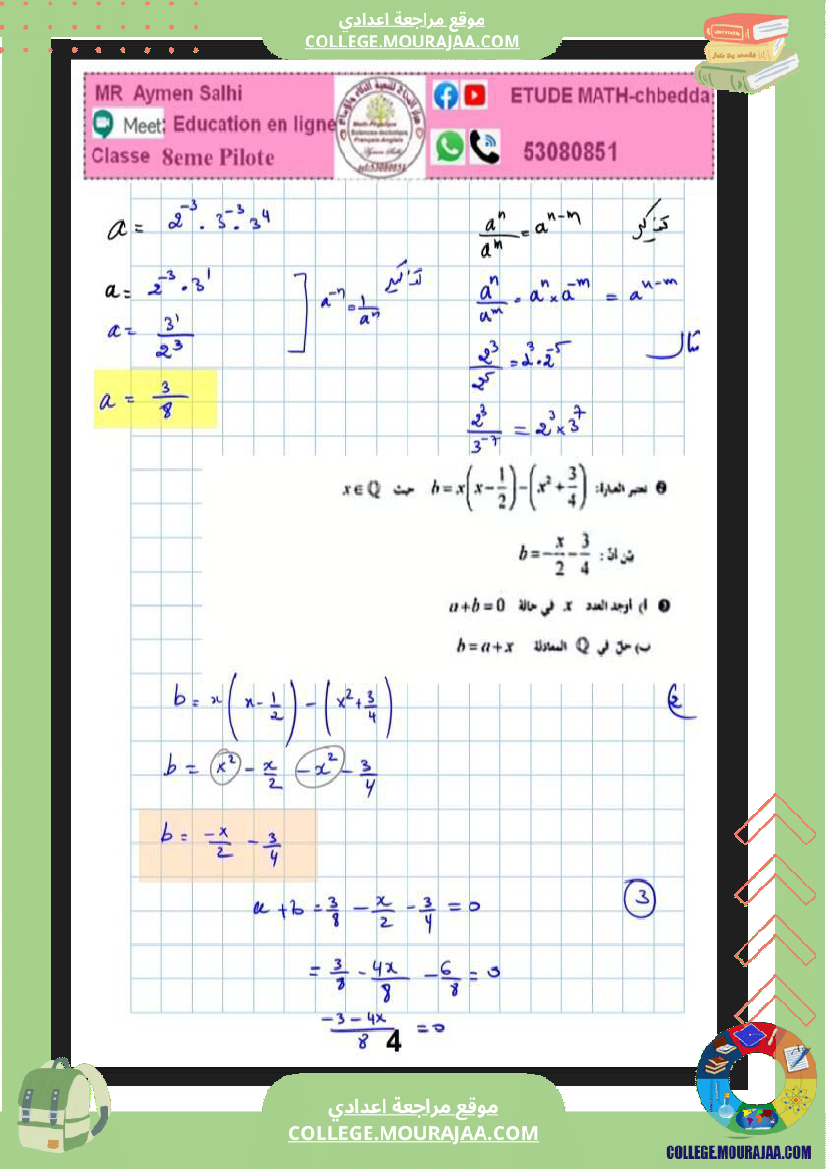 موقع مراجعة اعدادي
COLLEGE.MOURAJAA.COM
MR Aymen Salhi
Meet: Education en ligne
Classe 8eme Pilote
ETUDE MATH-chbedda
53080851
a = 2⁻³ . 3⁻³ . 3⁴
a = 2⁻³ . 3¹
a = 3¹/2³
a⁻ⁿ = 1/aⁿ تذكير
a = 3/8
aⁿ/aᵐ = aⁿ⁻ᵐ تذكير
aⁿ/aᵐ = aⁿ × a⁻ᵐ = aⁿ⁻ᵐ
مثال
2³/2⁵ = 2³ . 2⁻⁵
2³/3⁻⁷ = 2³ × 3⁷
❷ نعتبر العبارة: b = x(x − 1/2) − (x² + 3/4) حيث x ∈ Q
بين أن: b = −x/2 − 3/4
❸ أ) أوجد العدد x في حالة a + b = 0
ب) حل في Q المعادلة b = a + x
2)
b = x(x − 1/2) − (x² + 3/4)
b = x² − x/2 − x² − 3/4
b = −x/2 − 3/4
3
a + b = 3/8 − x/2 − 3/4 = 0
= 3/8 − 4x/8 − 6/8 = 0
(−3 − 4x)/8 = 0
4
موقع مراجعة اعدادي
COLLEGE.MOURAJAA.COM
COLLEGE.MOURAJAA.COM